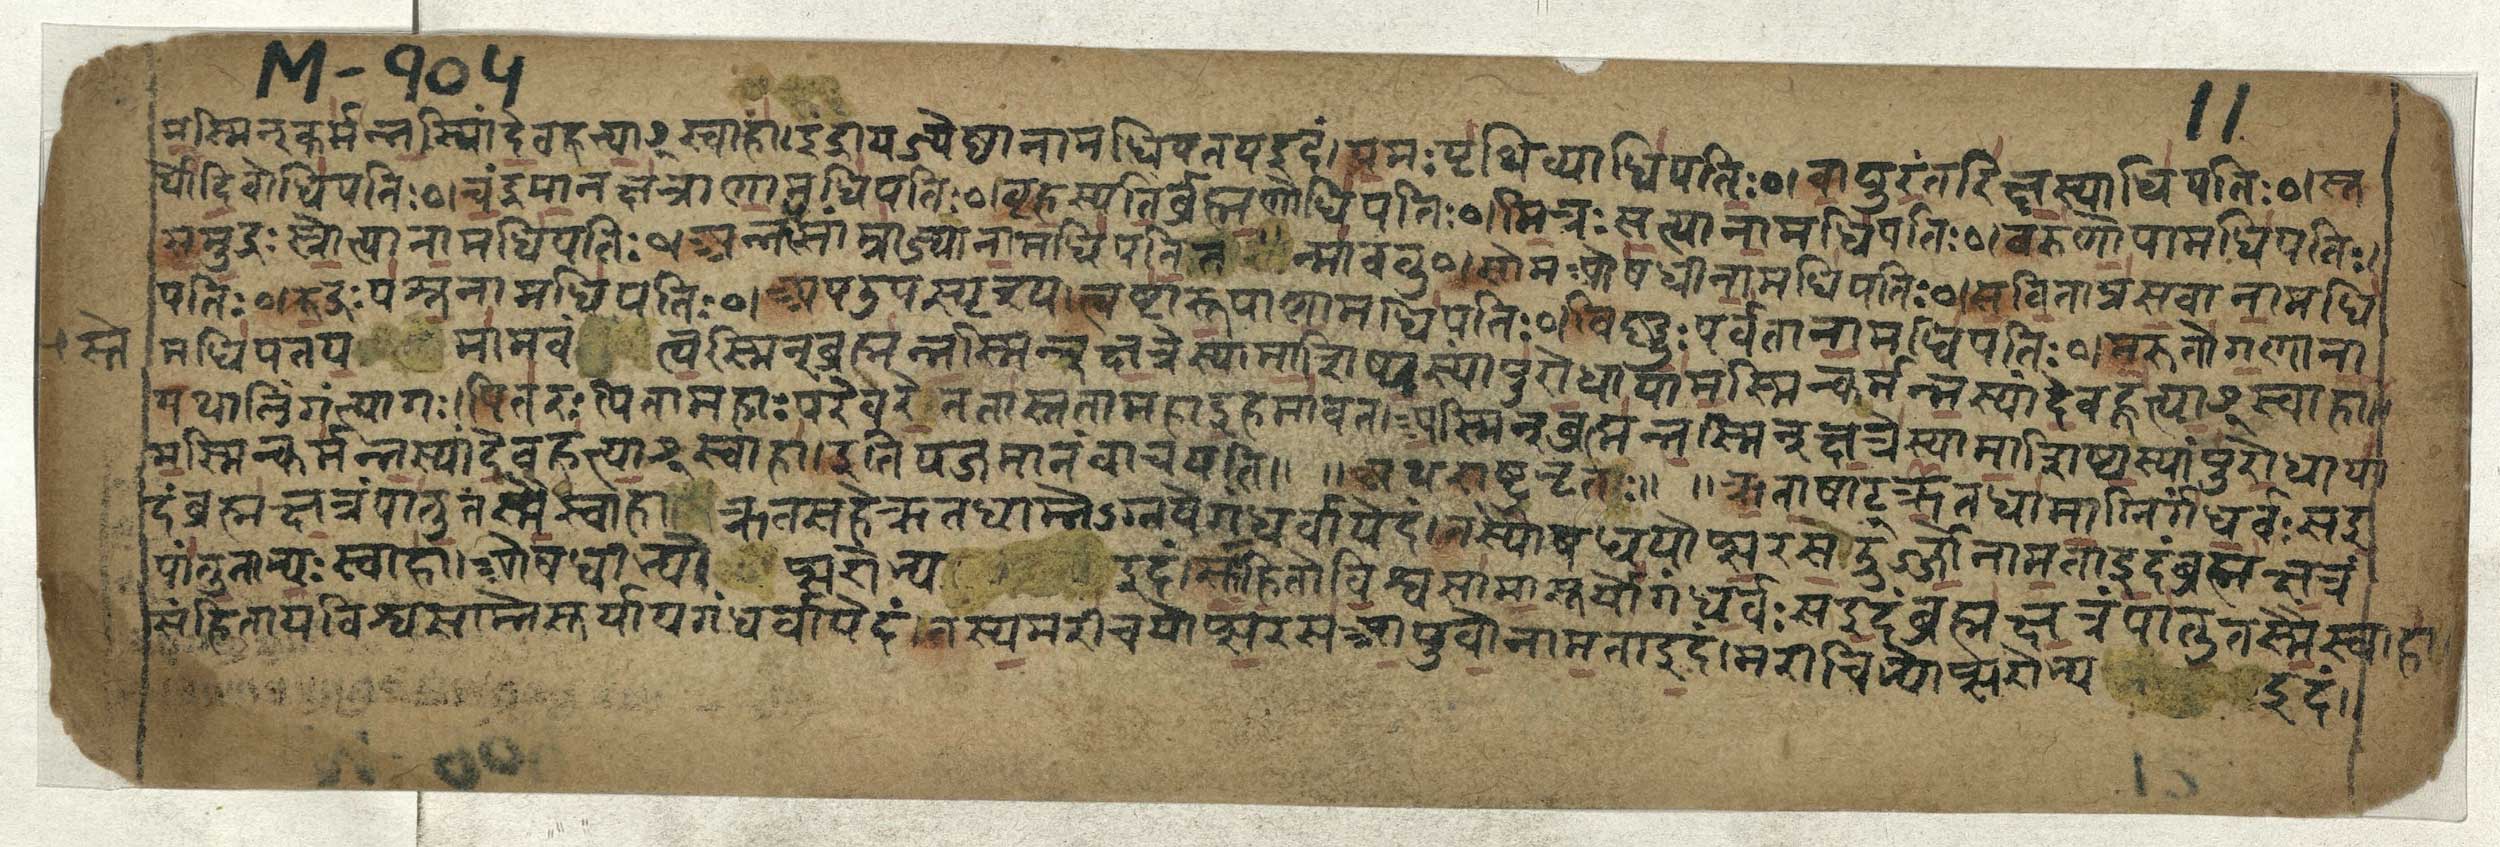 M-१०५
11
मस्मिन्कर्मन्नस्यां देवहूत्याᳪ स्वाहा। इंद्राय ज्यैष्ठ्यानामधिपतय इदं। यमः पृथिव्याधिपतिः०। वायुरंतरिक्षस्याधिपतिः०। सू
र्यो दिवोधिपतिः०। चंद्रमा नक्षत्राणामधिपतिः०। बृहस्पतिर्ब्रह्मणोधिपतिः०। मित्रः सत्यानामधिपतिः०। वरुणोपामधिपतिः।
समुद्रः स्रोत्यानामधिपतिः०। अन्नᳪ साम्राज्यानामधिपति त न्मावतु०। सोम ओषधीनामधिपतिः०। सविता प्रसवानामधि
पतिः०। रुद्रः पशूनामधिपतिः०। अप उपस्पृश्य। त्वष्टा रूपाणामधिपतिः०। विष्णुः पर्वतानामधिपतिः०। मरुतो गणाना
स्ते मधिपतय मामवं त्वस्मिन् ब्रह्मन्नस्मिन् क्षत्रेस्यामाशिष्यस्यां पुरोधायामस्मिन्कर्मन्नस्यां देवहूत्याᳪ स्वाहा।
यथालिंगं त्यागः। पितरः पितामहाः परेवरे ततास्ततामहा इह मावत। अस्मिन् ब्रह्मन्नस्मिन् क्षत्रेस्यामाशिष्यस्यां पुरोधाया
मस्मिन्कर्मन्नस्यां देवहूत्याᳪ स्वाहा। इति यजमानं वाचयति॥ ॥ अथ राष्ट्रभृतः॥ ॥ ऋताषाट् ऋतधामाग्निर्गंधर्वः स इ
दं ब्रह्म क्षत्रं पातु तस्मै स्वाहा ऋतसहे ऋतधाम्नेऽग्नये गंधर्वायेदं। तस्योषधयोप्सरस ऊर्जो नाम ता इदं ब्रह्म क्षत्रं
पांतु ताभ्यः स्वाहा। ओषधीभ्यो प्सरोभ्य इदं। सᳪहितो विश्वसामा सूर्यो गंधर्वः स इदं ब्रह्म क्षत्रं पातु तस्मै स्वाहा।
संहिताय विश्वसाम्ने सूर्याय गंधर्वायेदं। तस्य मरीचयोप्सरस आयुवो नाम ता इदं। मरीचिभ्योप्सरोभ्य इदं।